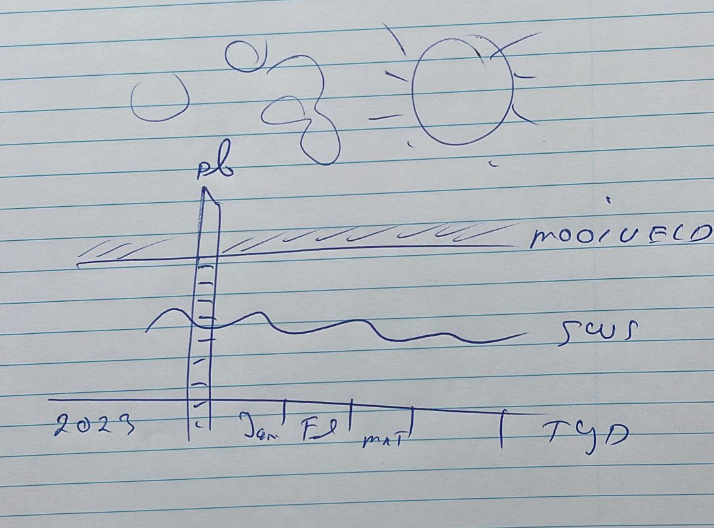 pb
MOOIVELD
SWS
2023 Jan Feb MRT TYD